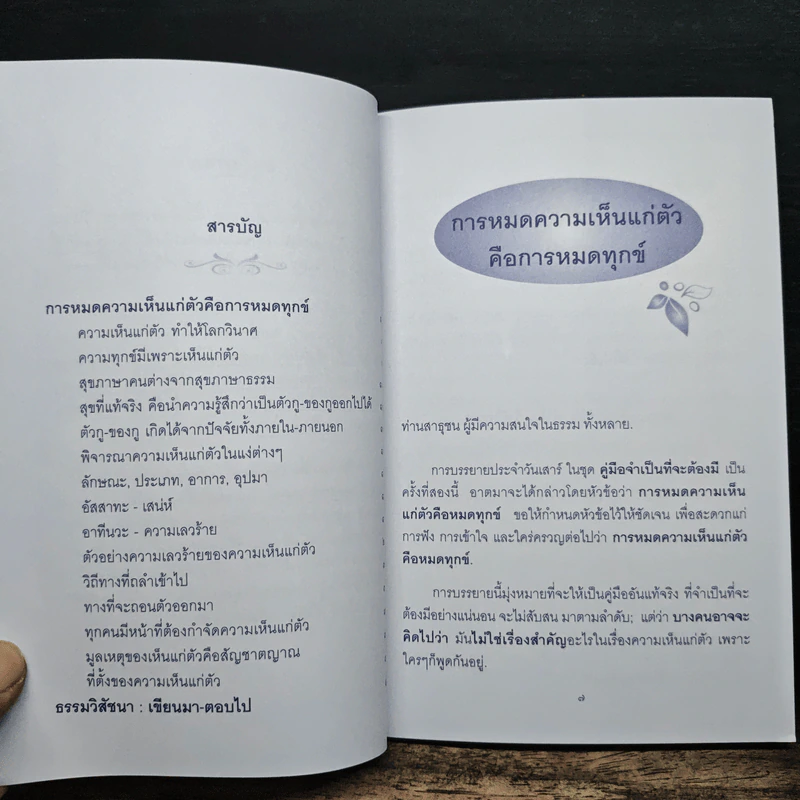 สารบัญ
การหมดความเห็นแก่ตัวคือการหมดทุกข์
ความเห็นแก่ตัว ทำให้โลกวินาศ
ความทุกข์มีเพราะเห็นแก่ตัว
สุขภาษาคนต่างจากสุขภาษาธรรม
สุขที่แท้จริง คือนำความรู้สึกว่าเป็นตัวกู-ของกูออกไปได้
ตัวกู-ของกู เกิดได้จากปัจจัยทั้งภายใน-ภายนอก
พิจารณาความเห็นแก่ตัวในแง่ต่างๆ
ลักษณะ, ประเภท, อาการ, อุปมา
อัสสาทะ - เสน่ห์
อาทีนวะ - ความเลวร้าย
ตัวอย่างความเลวร้ายของความเห็นแก่ตัว
วิถีทางที่ถลำเข้าไป
ทางที่จะถอนตัวออกมา
ทุกคนมีหน้าที่ต้องกำจัดความเห็นแก่ตัว
มูลเหตุของเห็นแก่ตัวคือสัญชาตญาณ
ที่ตั้งของความเห็นแก่ตัว
ธรรมวิสัชนา : เขียนมา-ตอบไป
การหมดความเห็นแก่ตัว
คือการหมดทุกข์
ท่านสาธุชน ผู้มีความสนใจในธรรม ทั้งหลาย.
การบรรยายประจำวันเสาร์ ในชุด คู่มือจำเป็นที่จะต้องมี เป็น
ครั้งที่สองนี้ อาตมาจะได้กล่าวโดยหัวข้อว่า การหมดความเห็น
แก่ตัวคือหมดทุกข์ ขอให้กำหนดหัวข้อไว้ให้ชัดเจน เพื่อสะดวกแก่
การฟัง การเข้าใจ และใคร่ครวญต่อไปว่า การหมดความเห็นแก่ตัว
คือหมดทุกข์.
การบรรยายนี้มุ่งหมายที่จะให้เป็นคู่มืออันแท้จริง ที่จำเป็นที่จะ
ต้องมีอย่างแน่นอน จะไม่สับสน มาตามลำดับ; แต่ว่า บางคนอาจจะ
คิดไปว่า มันไม่ใช่เรื่องสำคัญอะไรในเรื่องความเห็นแก่ตัว เพราะ
ใครๆก็พูดกันอยู่.
๗